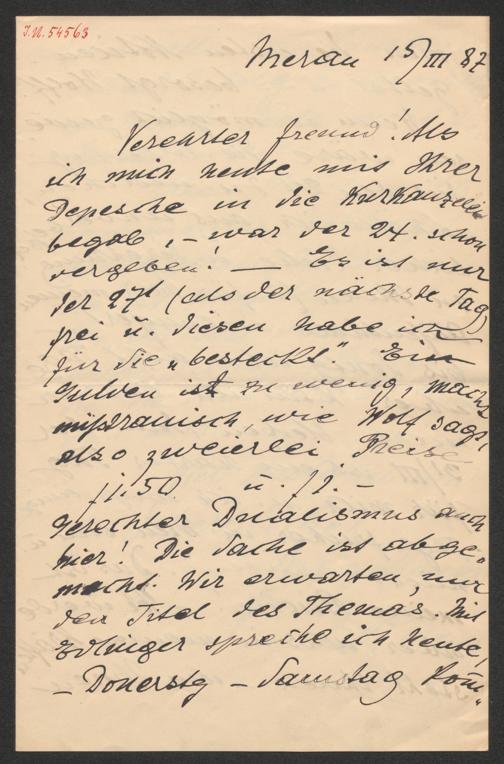 I.N. 54563
Meran 15/III 87
Verehrter Freund! Als
ich mich heute mit Ihrer
Depesche in die Kurkanzlei
begab, – war der 24. schon
vergeben! — Es ist nur
der 27t (als der nächste Tag)
frei u. diesen habe ich
für Sie „besteckt“. Ein
Gulden ist zu wenig, macht
mißtrauisch, wie Wolf sagt,
also zweierlei Preise
fl. 50 u. fl. –
Gerechter Dualismus auch
hier! Die Sache ist abge„
macht. Wir erwarten nur
den Titel des Themas. Mit
Edlinger spreche ich heute,
– Donerstg – Samstag kom̅„